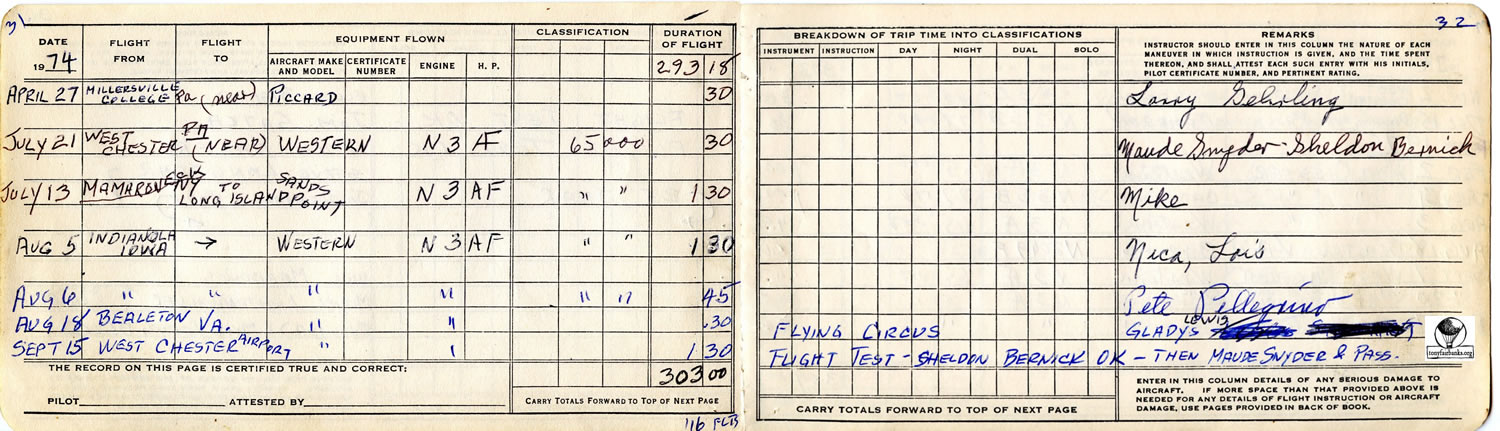 31
DATE
1974
FLIGHT FROM
FLIGHT TO
EQUIPMENT FLOWN
AIRCRAFT MAKE AND MODEL
CERTIFICATE NUMBER
ENGINE
H. P.
CLASSIFICATION
DURATION OF FLIGHT
293 18
APRIL 27 MILLERSVILLE COLLEGE Pa (near) PICCARD 30
JULY 21 WEST CHESTER PA (NEAR) WESTERN N3 AF 65 000 30
JULY 13 MAMARONECK NY TO LONG ISLAND SANDS POINT N3 AF " " 1 30
AUG 5 INDIANOLA IOWA → WESTERN N3 AF " " 1 30
AUG 6 " " " " " " 45
AUG 18 BEALETON VA. " " .30
SEPT 15 WEST CHESTER AIRPORT " " 1 30
THE RECORD ON THIS PAGE IS CERTIFIED TRUE AND CORRECT:
303 00
PILOT ATTESTED BY
CARRY TOTALS FORWARD TO TOP OF NEXT PAGE
116 FLB
32
BREAKDOWN OF TRIP TIME INTO CLASSIFICATIONS
INSTRUMENT INSTRUCTION DAY NIGHT DUAL SOLO
REMARKS
INSTRUCTOR SHOULD ENTER IN THIS COLUMN THE NATURE OF EACH
MANEUVER IN WHICH INSTRUCTION IS GIVEN, AND THE TIME SPENT
THEREON, AND SHALL ATTEST EACH SUCH ENTRY WITH HIS INITIALS,
PILOT CERTIFICATE NUMBER, AND PERTINENT RATING.
Larry Gehrling
Maude Snyder - Sheldon Bernick
Mike
Nica, Lois
Pete Pellegrino
FLYING CIRCUS GLADYS LEWIS
FLIGHT TEST - SHELDON BERNICK OK - THEN MAUDE SNYDER & PASS.
tonyfairbanks.org
CARRY TOTALS FORWARD TO TOP OF NEXT PAGE
ENTER IN THIS COLUMN DETAILS OF ANY SERIOUS DAMAGE TO
AIRCRAFT. IF MORE SPACE THAN THAT PROVIDED ABOVE IS
NEEDED FOR ANY DETAILS OF FLIGHT INSTRUCTION OR AIRCRAFT
DAMAGE, USE PAGES PROVIDED IN BACK OF BOOK.